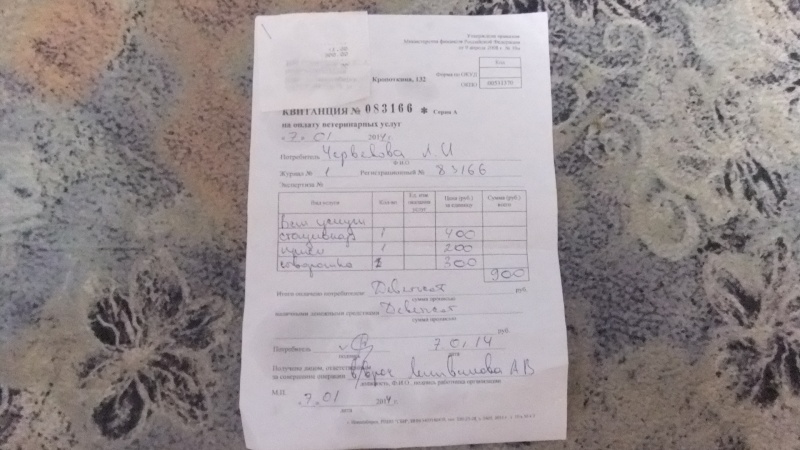 Утверждено приказом
Министерства финансов Российской Федерации
от 9 апреля 2008 г. №
Код
Форма по ОКУД
ОКПО
Кропоткина, 132
КВИТАНЦИЯ № 083166 * Серия А
на оплату ветеринарных услуг
«7» 01 2014 г.
Потребитель Червекова Л.И
Ф.И.О.
Журнал № 1 Регистрационный № 83166
Экспертиза №
Вид услуги Кол-во Ед. изм. оказания услуг Цена (руб.) за единицу Сумма (руб.) всего
Вет услуги
стационар 1 400
1 200
300
900
Итого оплачено потребителем Девятьсот руб.
сумма прописью
наличными денежными средствами Девятьсот
сумма прописью
руб.
Потребитель 7.01.14
подпись дата
Получено лицом, ответственным
за совершение операции врач Литвинова АВ
должность, Ф.И.О. подпись работника организации
М.П. «7» 01 2014 г.
дата